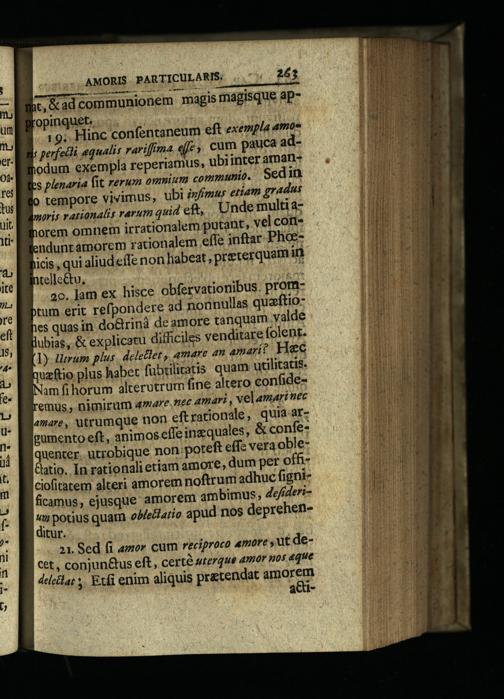 AMORIS PARTICULARIS. 263
nat, & ad communionem magis magisque ap-
propinquet.
19. Hinc conſentaneum eſt exempla amo-
ris perfecti æqualis rariſſima eſſe, cum pauca ad-
modum exempla reperiamus, ubi inter aman-
tes plenaria ſit rerum omnium communio. Sed in
eo tempore vivimus, ubi infimus etiam gradus
amoris rationalis rarum quid eſt, Unde multi a-
morem omnem irrationalem putant, vel con-
tendunt amorem rationalem eſſe inſtar Phœ-
nicis, qui aliud eſſe non habeat, præterquam in
intellectu.
20. Iam ex hisce obſervationibus prom-
ptum erit reſpondere ad nonnullas quæſtio-
nes quas in doctrinâ de amore tanquam valde
dubias, & explicatu difficiles venditare ſolent.
(1) Utrum plus delectet, amare an amari? Hæc
quæſtio plus habet ſubtilitatis quam utilitatis.
Nam ſi horum alterutrum ſine altero conſide-
remus, nimirum amare nec amari, vel amari nec
amare, utrumque non eſt rationale, quia ar-
gumento eſt, animos eſſe inæquales, & conſe-
quenter utrobique non poteſt eſſe vera oble-
ctatio. In rationali etiam amore, dum per offi-
cioſitatem alteri amorem noſtrum adhuc ſigni-
ficamus, ejusque amorem ambimus, deſideri-
um potius quam oblectatio apud nos deprehen-
ditur.
21. Sed ſi amor cum reciproco amore, ut de-
cet, conjunctus eſt, certè uterque amor nos æque
delectat; Etſi enim aliquis prætendat amorem
acti-